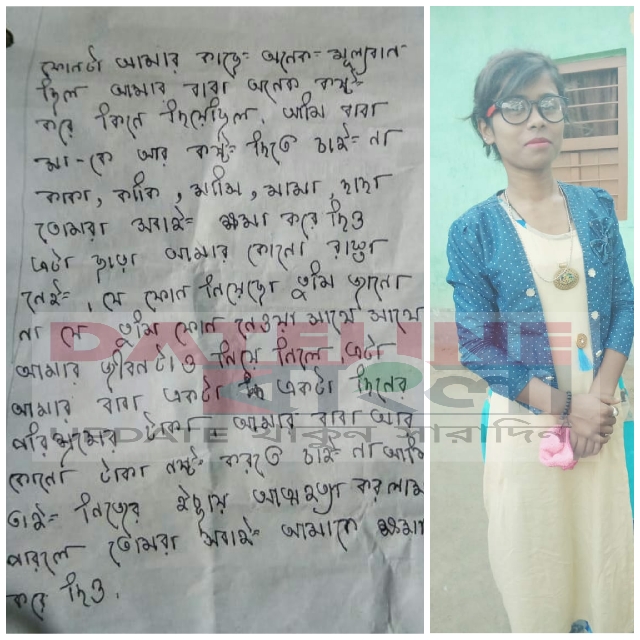 ফোনটা আমার কাছে অনেক মূল্যবান
ছিল আমার বাবা অনেক কষ্ট
করে কিনে দিয়েছিল. আমি বাবা
মা-কে আর কষ্ট দিতে চাই না
কাকা, কাকি, মামি, মামা, দাদা
তোমরা সবাই ক্ষমা করে দিও
এটা ছাড়া আমার কোনো রাস্তা
নেই, যে ফোন নিয়েছো তুমি জানো
না যে তুমি ফোন নেওয়া সাথে সাথে
আমার জীবনটাও নিয়ে নিলে এটা
আমার বাবা একটা একটা দিনের
পরিশ্রমের টাকা আমার বাবা আর
কোনো টাকা নষ্ট করতে চাই না আমি
তাই নিজের ইচ্ছায় আত্মহত্যা করলাম
পারলে তোমরা সবাই আমাকে ক্ষমা
করে দিও.
DATELINE
বাংলা
UPDATE থাকুন সারাদিন